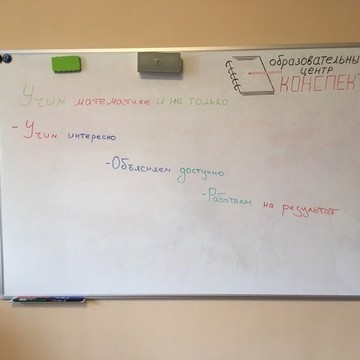 образовательный
центр
КОНСПЕКТ
Учим математике и не только
- Учим интересно
- Объясняем доступно
- Работаем на результат